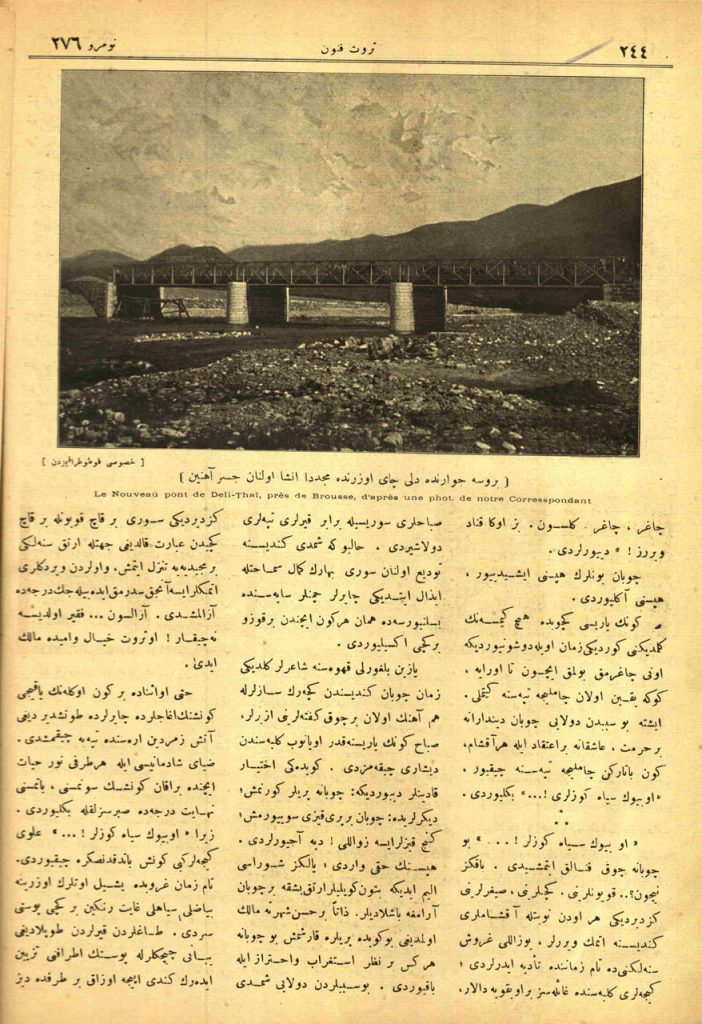 ٢٤٤
ثروت فنون
نومرو ٢٧٦
[ خصوصی فوطوغرافیمزدن ]
( بروسه جوارنده دلی چای اوزرنده مجددا انشا اولنان جسر آهنین )
Le Nouveau pont de Deli-Thaï, près de Brousse, d'après une phot. de notre Correspondant
چاغر ، چاغر . کلسون . بز اوکا قناد
ویررز ! » دییورلردی .
چوبان بونلرك هپسنی ایشیدییور ،
هپسنی آکلیوردی .
کونك یاریسی کچوبده هیچ کیمسه‌نك
کلمدیکنی کوردیکی زمان اویله دوشونیوردیکه
اونی چاغرمق بولمق ایچون تا اورایه ،
کوکه یقین اولان چاملیجه تپه‌سنه کیتملی .
ایشته بو سببدن دولایی چوبان دیندارانه
بر حرمت ، عاشقانه بر اعتقاد ایله هر آقشام ،
کون باتارکن چاملیجه تپه‌سنه چیقیور ،
« او بیوك سیاه کوزلری !... » بکلیوردی .
« او بیوك سیاه کوزلر ! . . . » بو
چوبانه چوق فنالق ایتمشیدی . باقکز
نیچون؟.. قویونلرنی . کچیلرنی ، صیغرلرینی
کزدیردیکی هر اودن نوبتله آقشاملری
کندیسنه اتمك ویررلر ، یوزاللی غروش
سنه‌لکنی‌ده تام زماننده تأدیه ایدرلردی ؛
کیجه‌لری کلبه‌سنده غائله‌سز بر اویقویه دالار،
صباحلری سوریسیله برابر قیرلری تپه‌لری
دولاشیردی . حالبوکه شمدی کندیسنه
تودیع اولنان سوری بهارك کمال سماحتله
ابذال ایتدیکی چایرلر چمنلر سایه‌سنده
بسلنیورسه‌ده همان هر کون ایچندن بر قوزو
بر کچی اکسیلیوردی .
یازین بلغورلی قهوه‌سنه شاعرلر کلدیکی
زمان چوبان کندیسندن کچه‌رك سازلرله
هم آهنك اولان بر چوق کفته‌لرنی ازبرلر،
صباح کونك یاریسنه‌قدر اویانوب کلبه‌سندن
دیشاری چیقه‌مزدی . کویده‌کی اختیار
قادینلر دییوردیکه: چوبانه پریلر کورنمش؛
دیکرلریده: چوبان بر پری قیزی سوییورمش؛
کنج قیزلرایسه زواللی ! دیه آجیورلردی .
هپسنك حقی واردی ؛ یالکز شوراسی
الیم ایدیکه بتون کویلیلر ارتق بشقه بر چوبان
آرامغه باشلادیلر. ذاتاً بر حسن شهرته مالك
اولمدیغی بو کویده پریلره قارشمش بو چوبانه
هر کس بر نظر استغراب واحتراز ایله
باقیوردی . بو سببلردن دولایی شمدی
کزدیردیکی سوری بر قاچ قویونله بر قاچ
کچیدن عبارت قالدیغی جهتله ارتق سنه‌لکی
بر مجیدیه‌یه تنزل ایتمش، واولردن ویردکلری
اتمکلر ایسه آنجق سدرمق ایده‌بیله‌جك درجه‌ده
آزالمشدی . آزالسون ... فقیر اولدیسه
نه چیقار ! او ثروت خیال وامیده مالك
ایدی .
حتی او اثناده بر کون اوکله‌نك یاقیجی
کونشنك اغاجلرده چایرلرده طوتشدیردیغی
آتش زمردین اره‌سنده تپه‌یه چیقمشدی .
ضیای شادمانیسی ایله هر طرفی نور حیات
ایچنده براقان کونشك سونمسنی ، باتمسنی
نهایت درجه‌ده صبرسزلقله بکلیوردی .
زیرا « او بیوك سیاه کوزلر ! ... » علوی
کیجه‌لر کبی کونش باندقدنصکره چیقیوردی.
تام زمان غروبده یشیل اوتلرك اوزرینه
بیاضلی سیاهلی غایت رنکین بر کچی پوستی
سردی . طاغلردن قیرلردن طوپلادیغی
یبانی چیچکلرله پوستك اطرافنی تزیین
ایده‌رك کندی اینجه اوزاق بر طرفده دیز